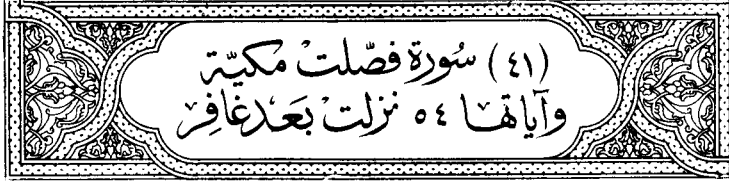 (٤١) سُورَة فصّلتْ مكيّة
وآياتها ٥٤ نزلتْ بَعَد غافِر